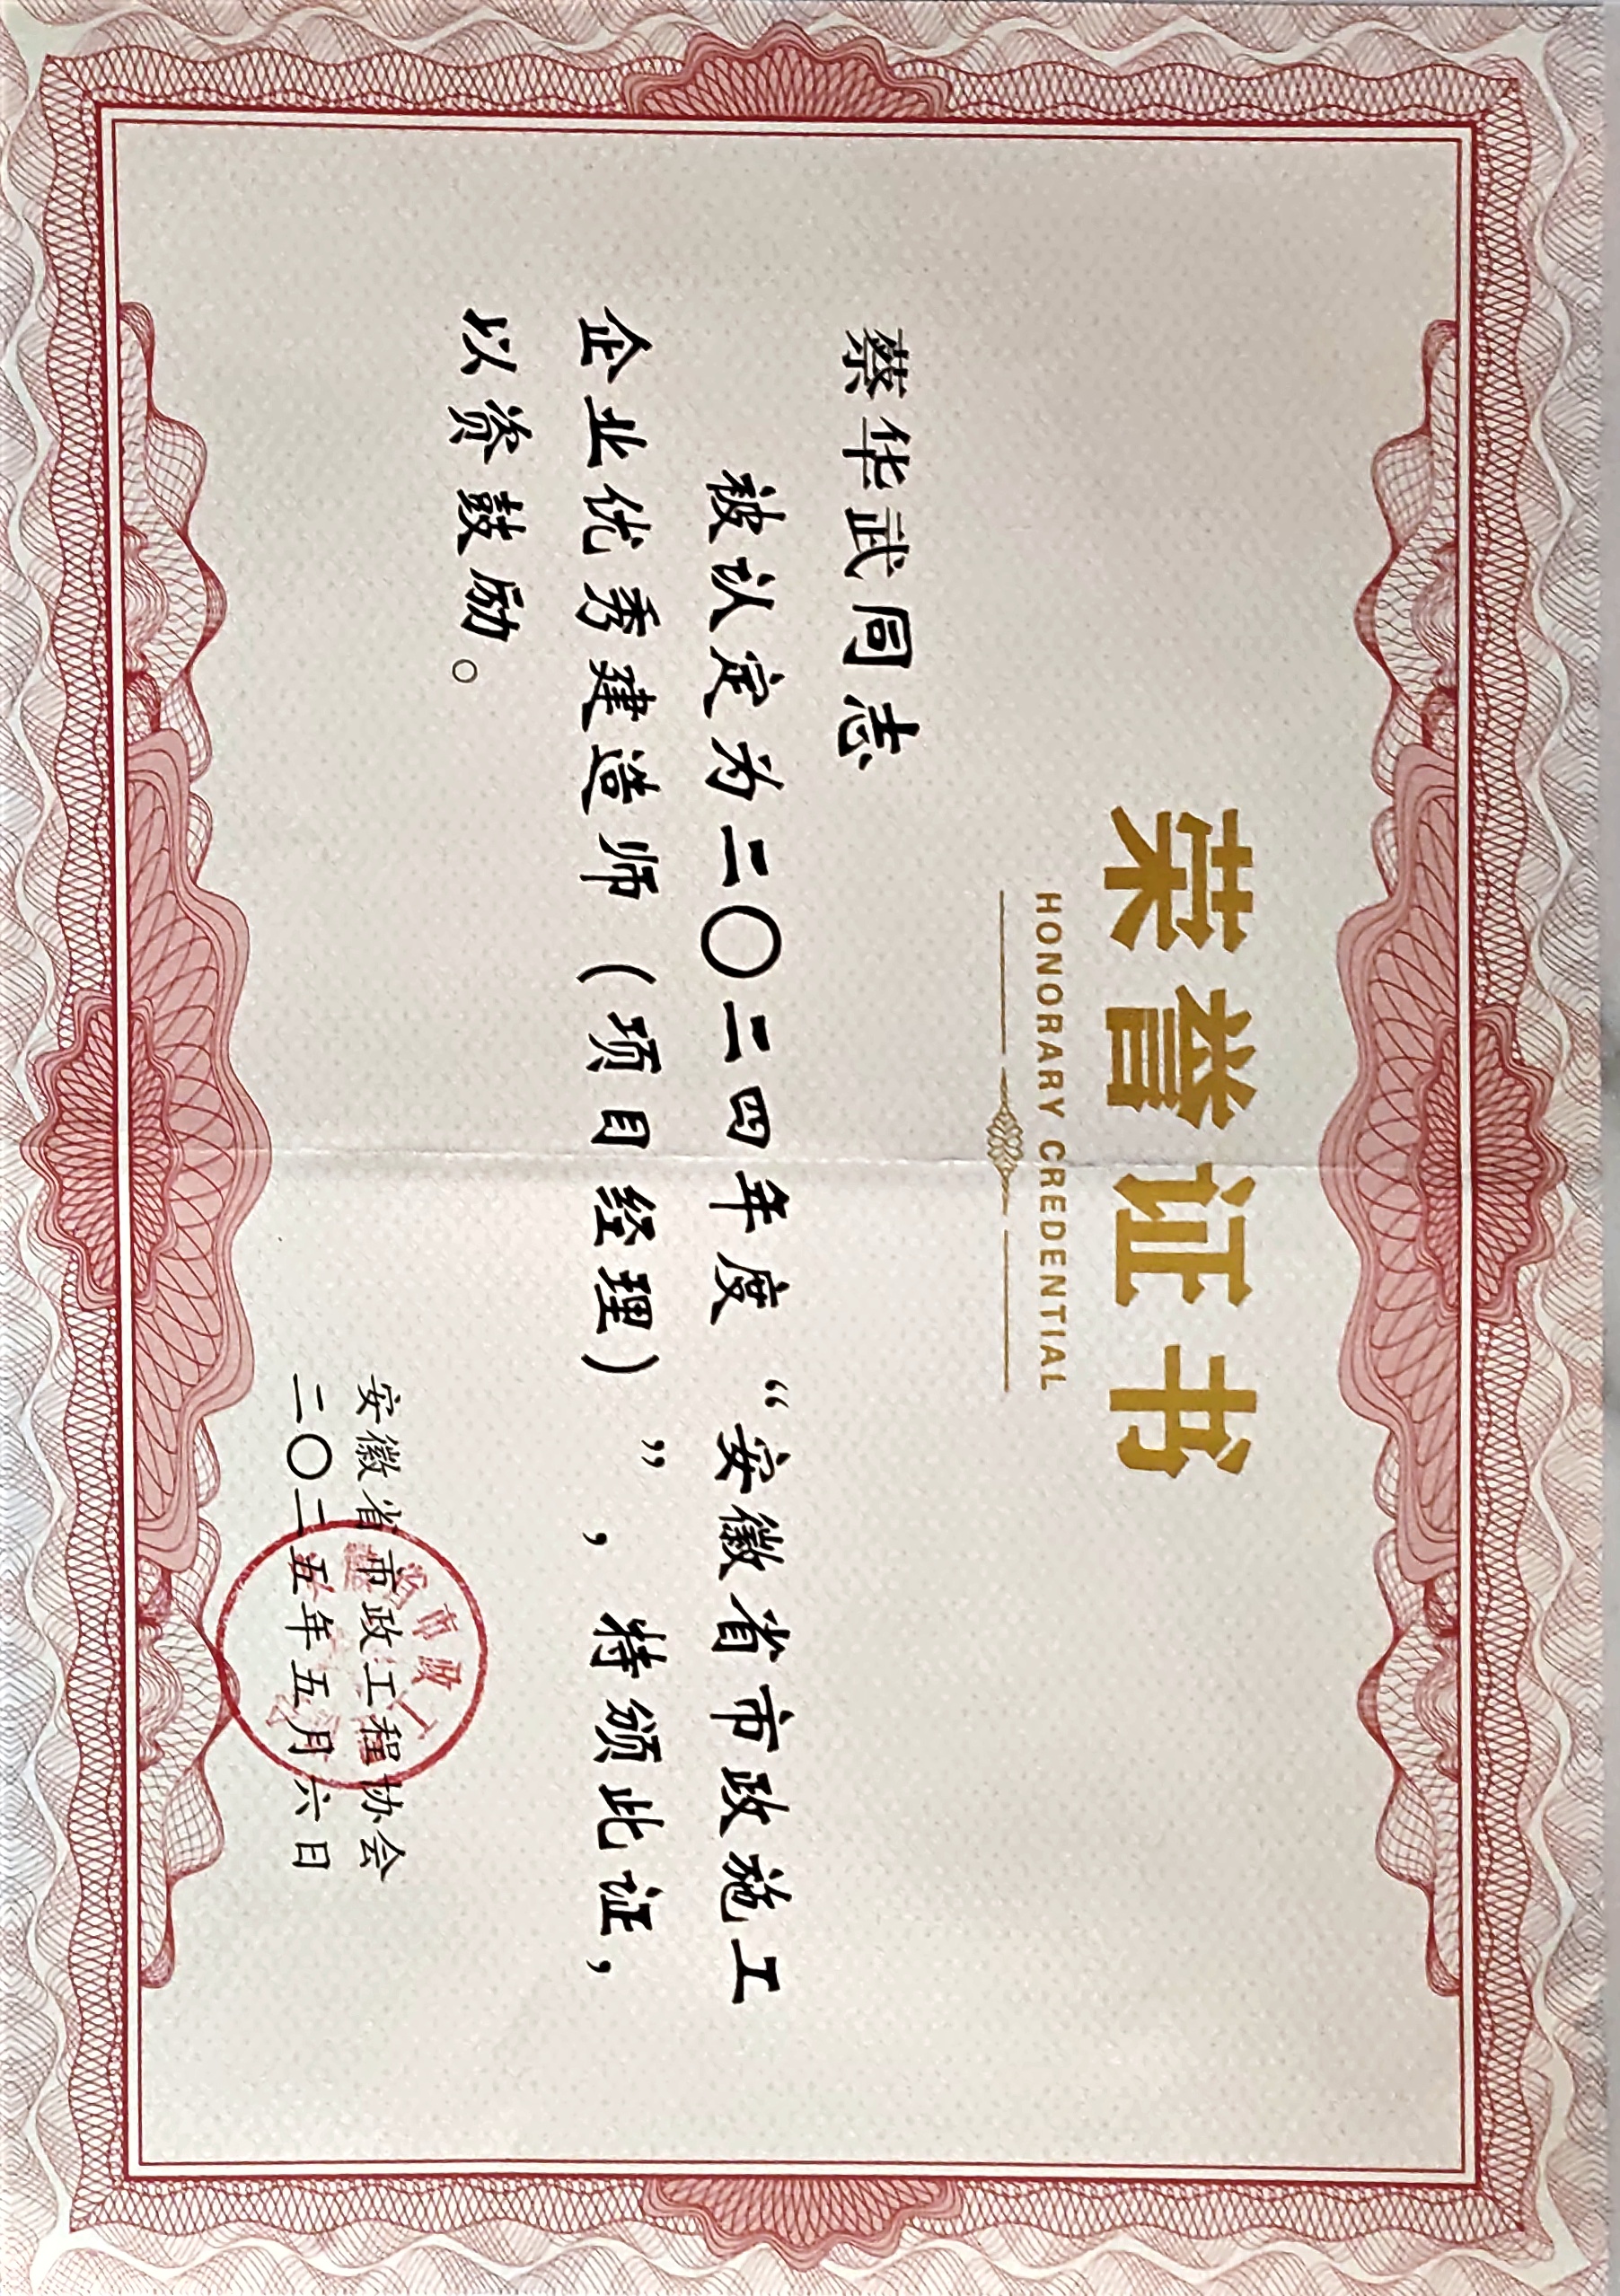 荣誉证书
HONORARY CREDENTIAL
蔡华武同志
被认定为二〇二四年度“安徽省市政施工
企业优秀建造师(项目经理)”,特颁此证,
以资鼓励。
安徽省市政工程协会
二〇二五年五月六日